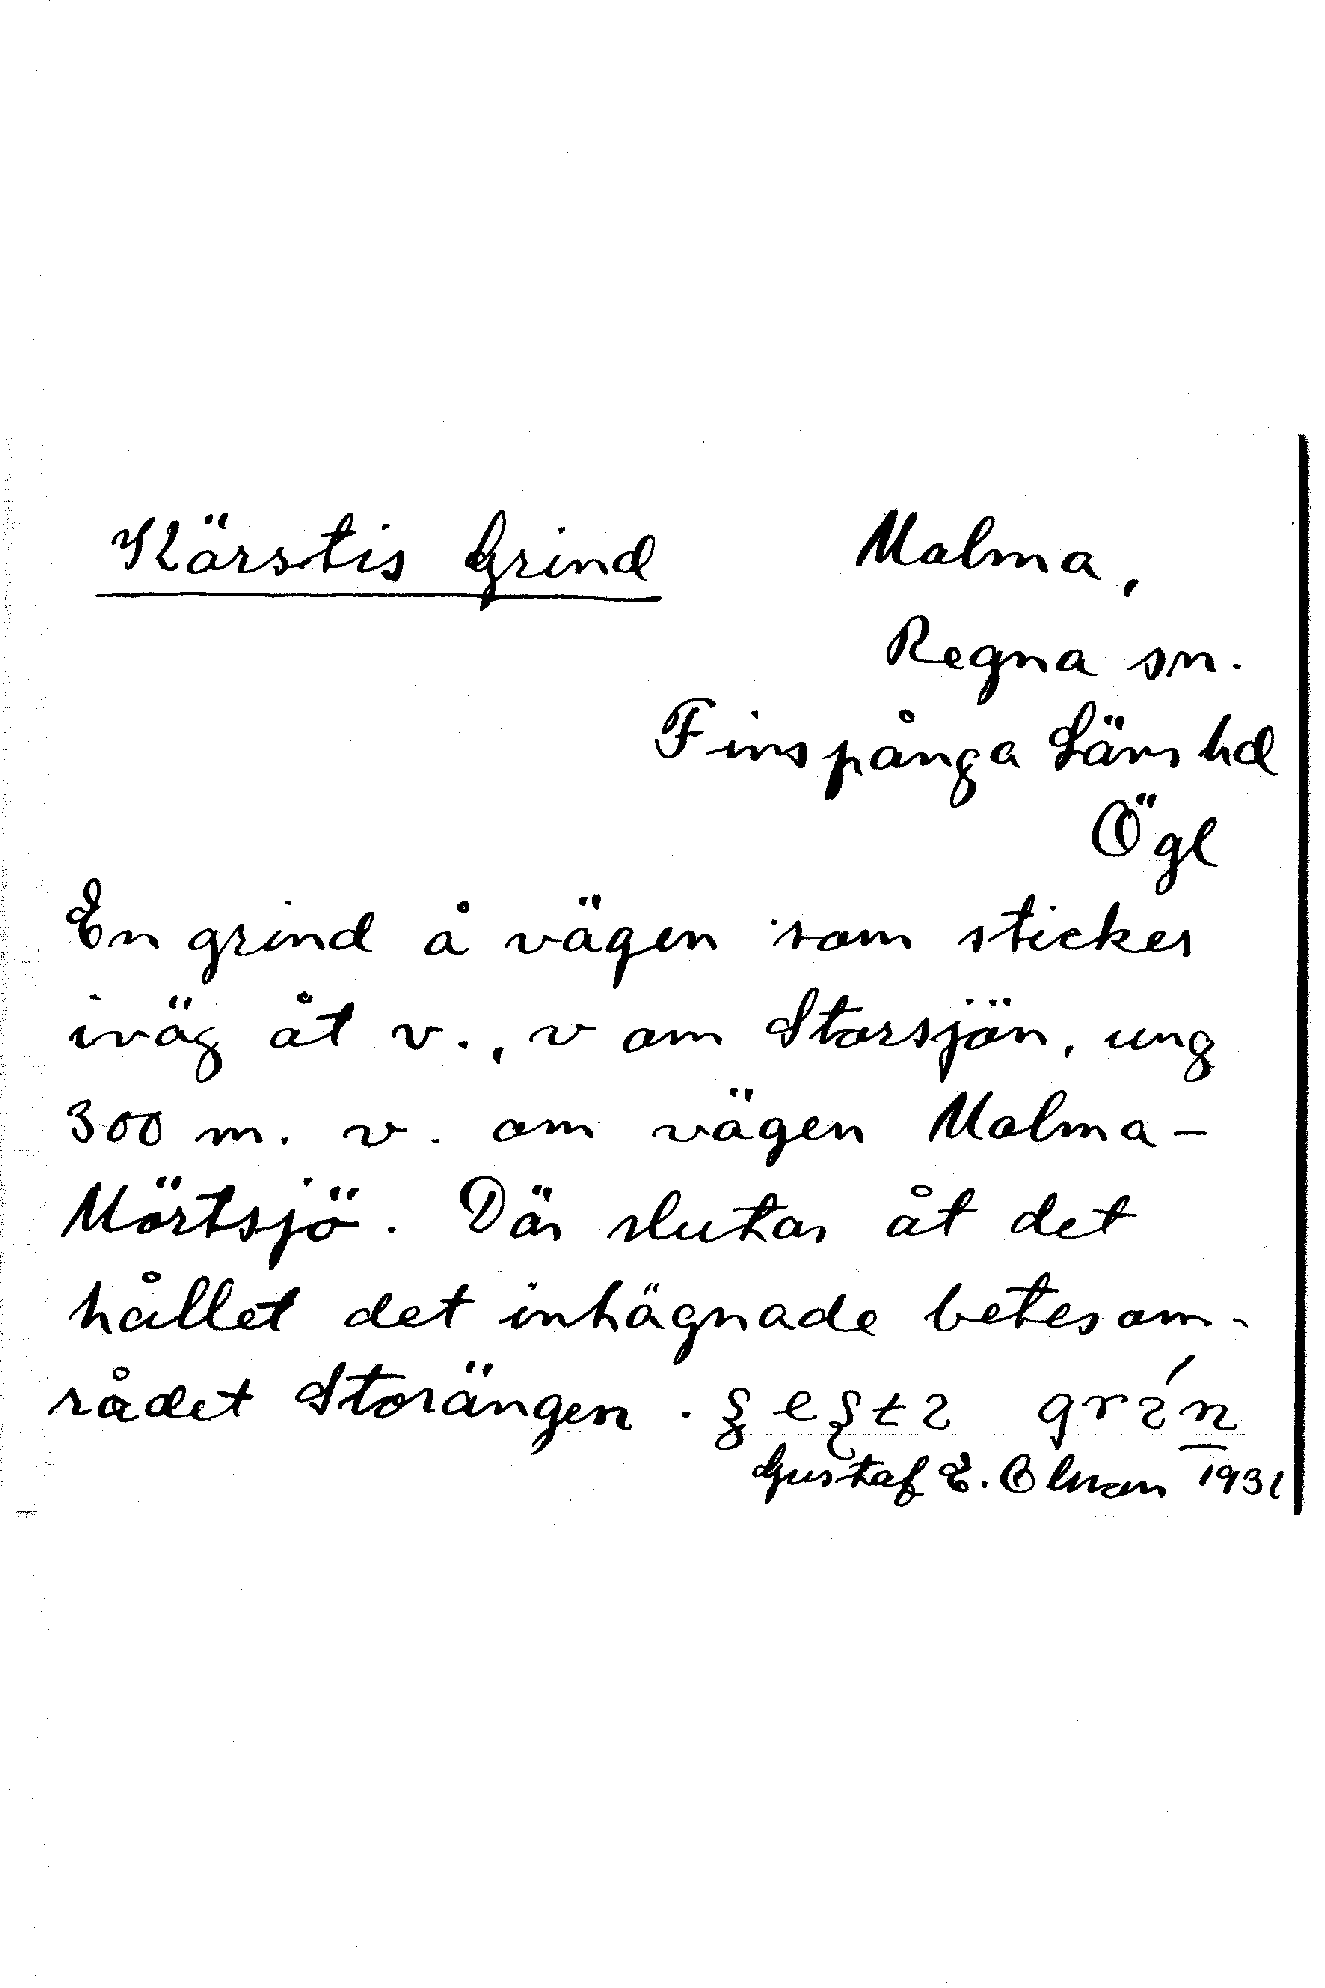 Kärstis Grind
Malma,
Regna sn.
Finspånga Läns hd
Ögl
En grind å vägen som sticker
iväg åt v., v om Storsjön, ung
300 m. v. om vägen Malma-
Mörtsjö. Där slutar åt det
hållet det inhägnade betesom-
rådet Storängen.
Gustaf E. 1931